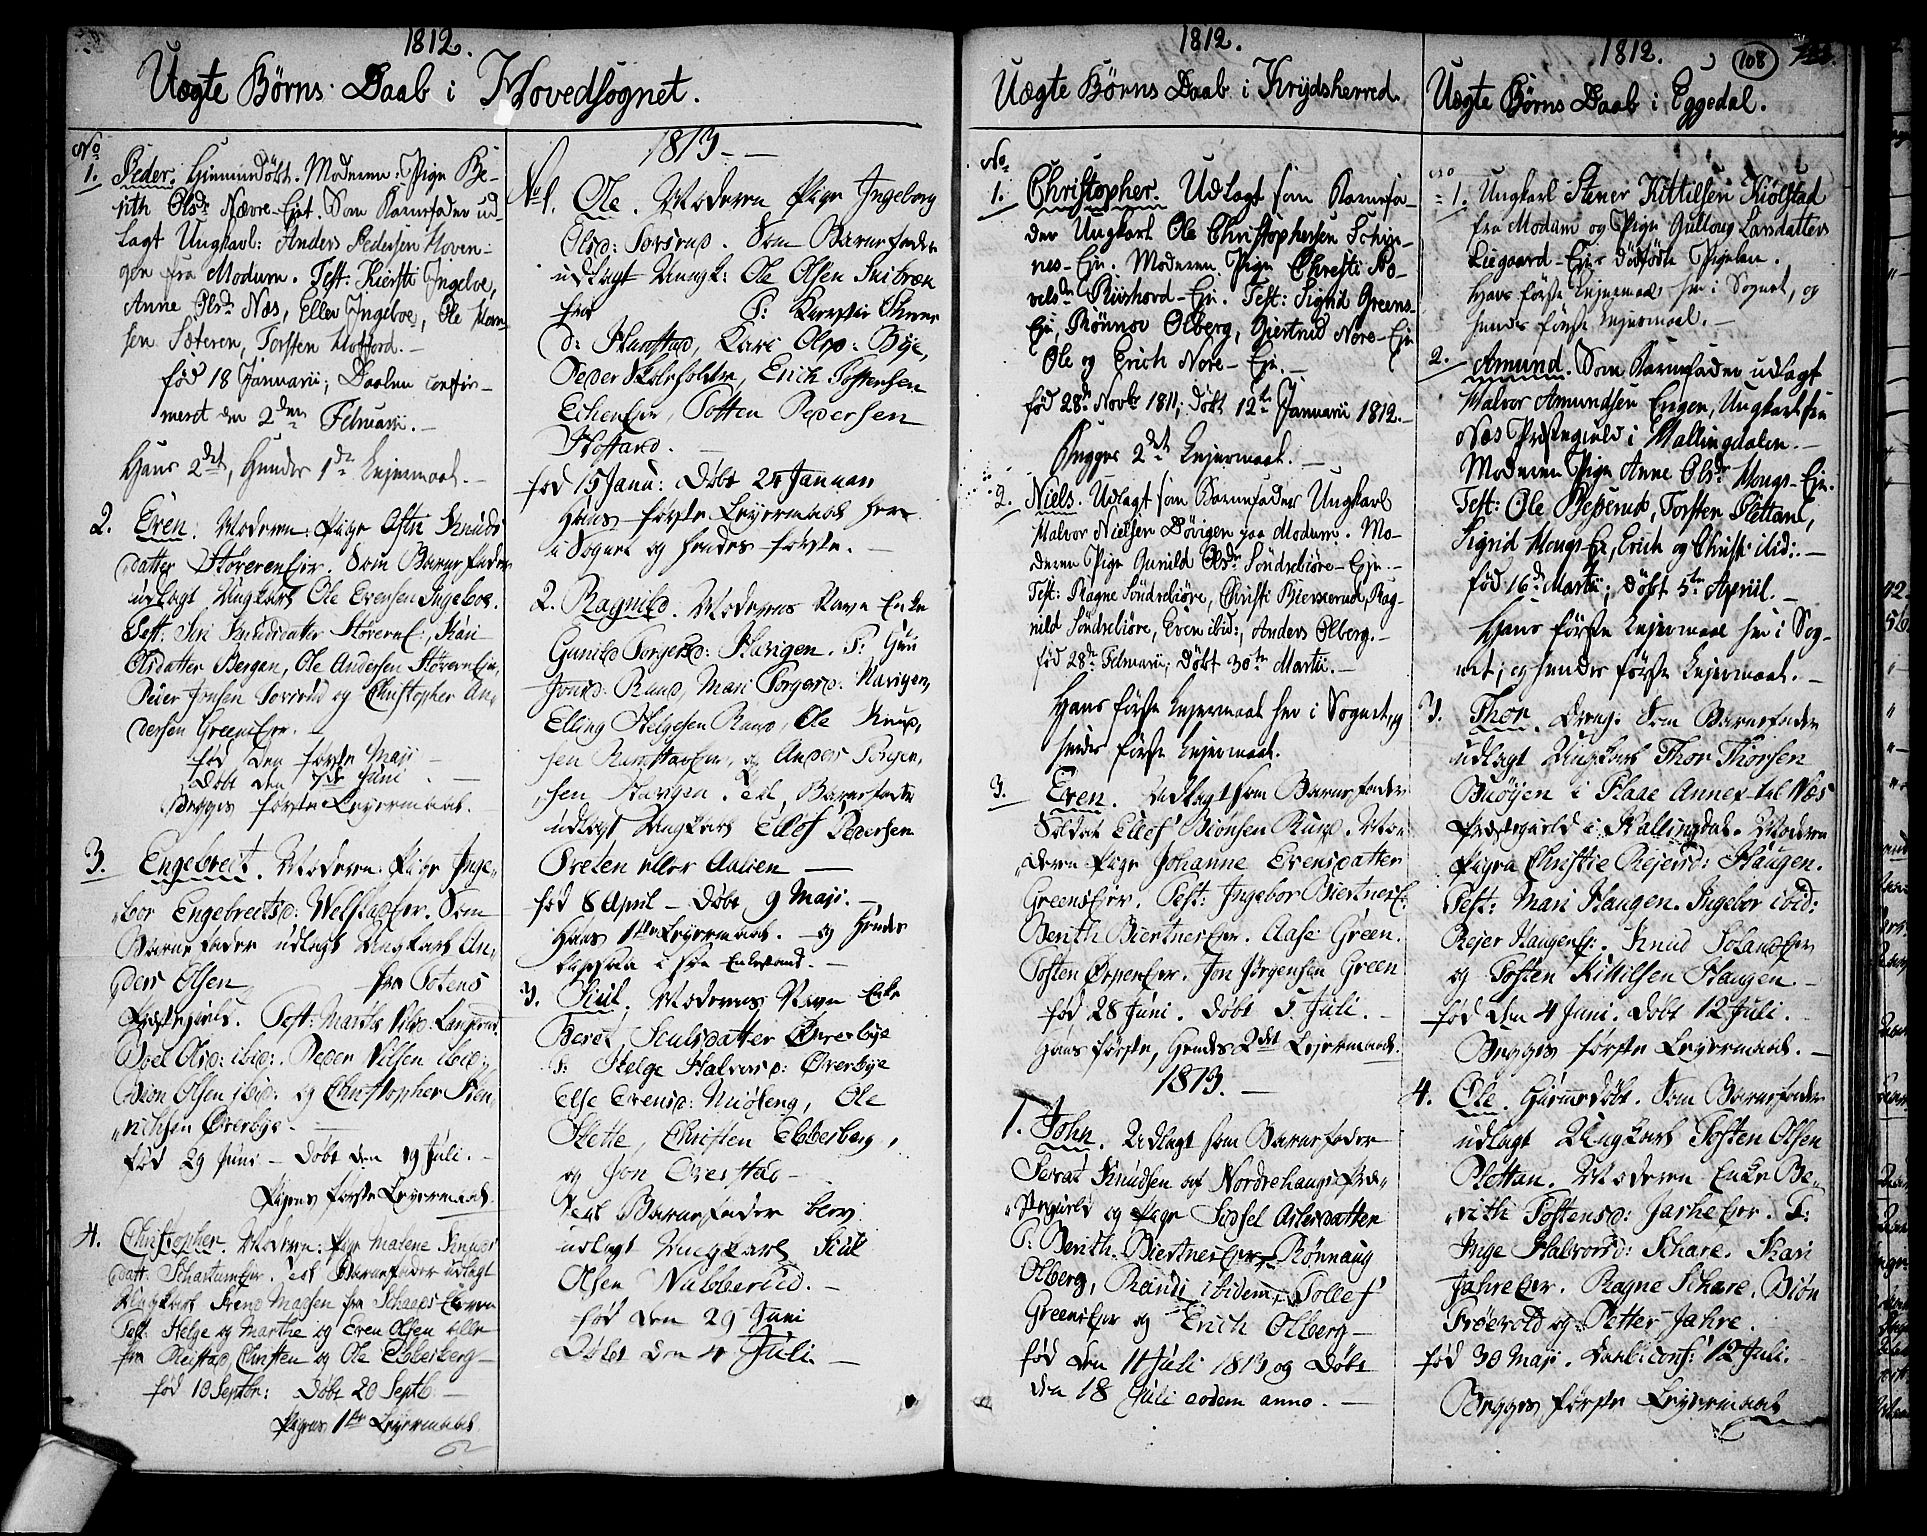 1812.
Uægte Børns Daab i Hovedsognet.
No
1. Peder. Hiemmedøbt. Moderen: Pige Be-
rith Olsdr Nævre-Eje. Som Barnefader ud-
lagt Ungkarl: Anders Pedersen Hoven-
gen fra Modum. Test: Kiersti Ingelvoe,
Anne Olsdr Næs, Ellev Ingelvoe, Ole
sen Sæteren, Torsten Hofford.
fød 18 Januarii; Daaben confir-
meret den 2den Februarii.
Hans 2det, Hendes 1te Lejermaal.
2. Even. Moderen: Pige Knuds
datter StøverenEjer. Som Barnefader
udlagt Ungkarl Ole Evensen Ingelvoe.
Test: Siri Knudsdatter StøverenE:, Kari
Olsdatter Bergan, Ole Andersen StøverenEje,
Peder Jonsen og Christopher An-
dersen GreenEjer.
fød den første Maji
Døbt den 7de Juni.
Begges første Lejermaal.
3. Engebreit. Moderen: Pige Inge-
bor Engebreitsd: WelstadEjer. Som
Barnefader udlagt Ungkarl An-
ders Olsen fra Totens
Præstegield. Test: Marthe
Joel Olsd: ibid: Peder Nilsen ibid:,
Biøn Olsen ibid: og Christopher Hen-
richsen Øverbye.
fød 29 Juni - Døbt den 19 Juli.
Pigens første Lejermaal.
4. Christopher. Moderen: Pige Malene Knuds
datt: SchartumEjer. Till Barnefader udlagt
Ungkarl Svend Madsen fra
Test: Helge og Marthe og Even Olsen
fra Christen og Ole Ebbesberg
fød 10 Septbr: Døbt 20 Septb:
Pigens 1ste Lejermaal
1813
No 1. Ole. Moderen Pige Ingeborg
Olsd: Som Barnefader
udlagt Ungk: Ole Olsen Snibræn
fra T: Kirstie
d: Hanstad, Kari Olsd: Bye,
Peder Skoleholder, Erich Tostensen
EchenEjer, Tosten Pedersen
Hoffard.
fød 15 Janu: Døbt 24 Januarii
Hans første Lejermaal her
i Sognet og hendes første.
2. Ragnild. Moderens Navn Enke
Gunild Torgersd: Havigen. T:
Jonsd: Ruud, Mari Torgersd: Havigen,
Elling Helgesen Ruud, Ole Knud-
sen og Anders Torger-
sen Havigen. Till Barnefader
udlagt Ungkarl Ellef Pedersen
Breten eller Aasen
fød 8 April - Døbt 9 Maji.
Hans 1ste Lejermaal. - og Hendes
ligesaa i sin Enkestand.
3. Siul. Moderens Navn Enke
Beret Siulsdatter Øverbye
T: Helge Halvorsd: Øverbye
Else Evensd: Ole
Slette, Christen Ebbesberg,
og Jon Overstad
Till Barnefader blev
udlagt Ungkarl Siul
Olsen Wubberud.
fød den 29 Juni
Døbt den 4 Juli.
1812.
Uægte Børns Daab i Krydsherred.
No
1. Christopher. Udlagt som Barnefa-
der Ungkarl Ole Christophersen Schin-
nes-Eje. Moderen Pige Christi No-
velsdr Rishovd-Eje. Test: Sigrid Greens-
Eje, Rønnov Olberg, Giertrud Nore-Eje
Ole og Erich Nore-Eje.
fød 28de Novbr 1811; døbt 12te Januarii 1812.
Begges 2det Lejermaal.
2. Niels. Udlagt som Barnefader Ungkarl
Halvor Nielsen Døvigen paa Modum. Mo-
deren Pige Gunild Olsdr Søndrebiøre-Eje.
Test: Ragne Søndrebiøre, Christi Bierkerud, Rag-
nild Søndrebiøre, Even ibid:, Anders Olberg.
fød 28de Februarii; Døbt 30te Martii.
Hans første Lejermaal her i Sognet, og
hendes første Lejermaal.
3. Even. Udlagt som Barnefader
Soldat Ellef Biønsen Ruud. Mo-
deren Pige Johanne Evensdatter
GreensEjer. Test: Ingebor BiertnesE:
Berith BiertnesEjer. Aase Green.
Tosten ØrpenEjer. Jon Jørgensen Green
fød 28 Juni. Døbt 5 Juli.
Hans første, Hendes 2det Lejermaal.
1813.
1. John. Udlagt som Barnefader
Knudsen af Nordrehaugs Præ-
stegield og Pige Sidsel Aslesdatter
T: Berith BiertnesEjer Rønnaug
Olberg, Randi ibidem, Tollef
GreensEjer og Erich Olberg
fød den 11 Juli 1813 og Døbt
den 18 Juli eodem anno.
1812. 108
Uægte Børns Daab i Eggedal.
No
1. Ungkarl Stener Kittilsen Kiølstad
fra Modum og Pige Gulloug Larsdatter
Liegaard-Eje dødfødte Pigebarn.
Hans første Lejermaal her i Sognet, og
hendes første Lejermaal.
2. Amund. Som Barnefader udlagt
Halvor Amundsen Engen, Ungkarl fra
Næs Præstegield i Hallingdalen.
Moderen Pige Anne Olsdr Hougs-Eje.
Test: Ole Besserud, Torsten Plettan,
Sigrid Hougs Ej, Erich og Christi ibid:.
fød 16de Martii; Døbt 5te April.
Hans første Lejermaal her i Sog-
net; og hendes første Lejermaal.
3. Thor. Dreng. Som Barnefader
udlagt Ungkarl Thor Thorsen
Buøyen i Flaae Annex til Næs
Præstegield i Hallingdal. Moderen
Pigen Christie Rejersd: Haugen.
Test: Mari Haugen. Ingebor ibid:
Rejer HaugenEj:. Knud SolandEjer
og Tosten Kittilsen Haugen.
fød den 4 Juni. Døbt 12 Juli.
Begges første Lejermaal.
4. Ole. Hiemmedøbt. Som Barnefader
udlagt Ungkarl Tosten Olsen
Plettan. Moderen Enke Be-
rith Tostensd: JarheEjer. T:
Inge Halvorsd: Schare. Kari
JahreEjer. Ragne Schare. Biøn
Frøevold og Petter Jahre.
fød 30 Maji. Daab: conf: 12 Juli.
Begges første Lejermaal